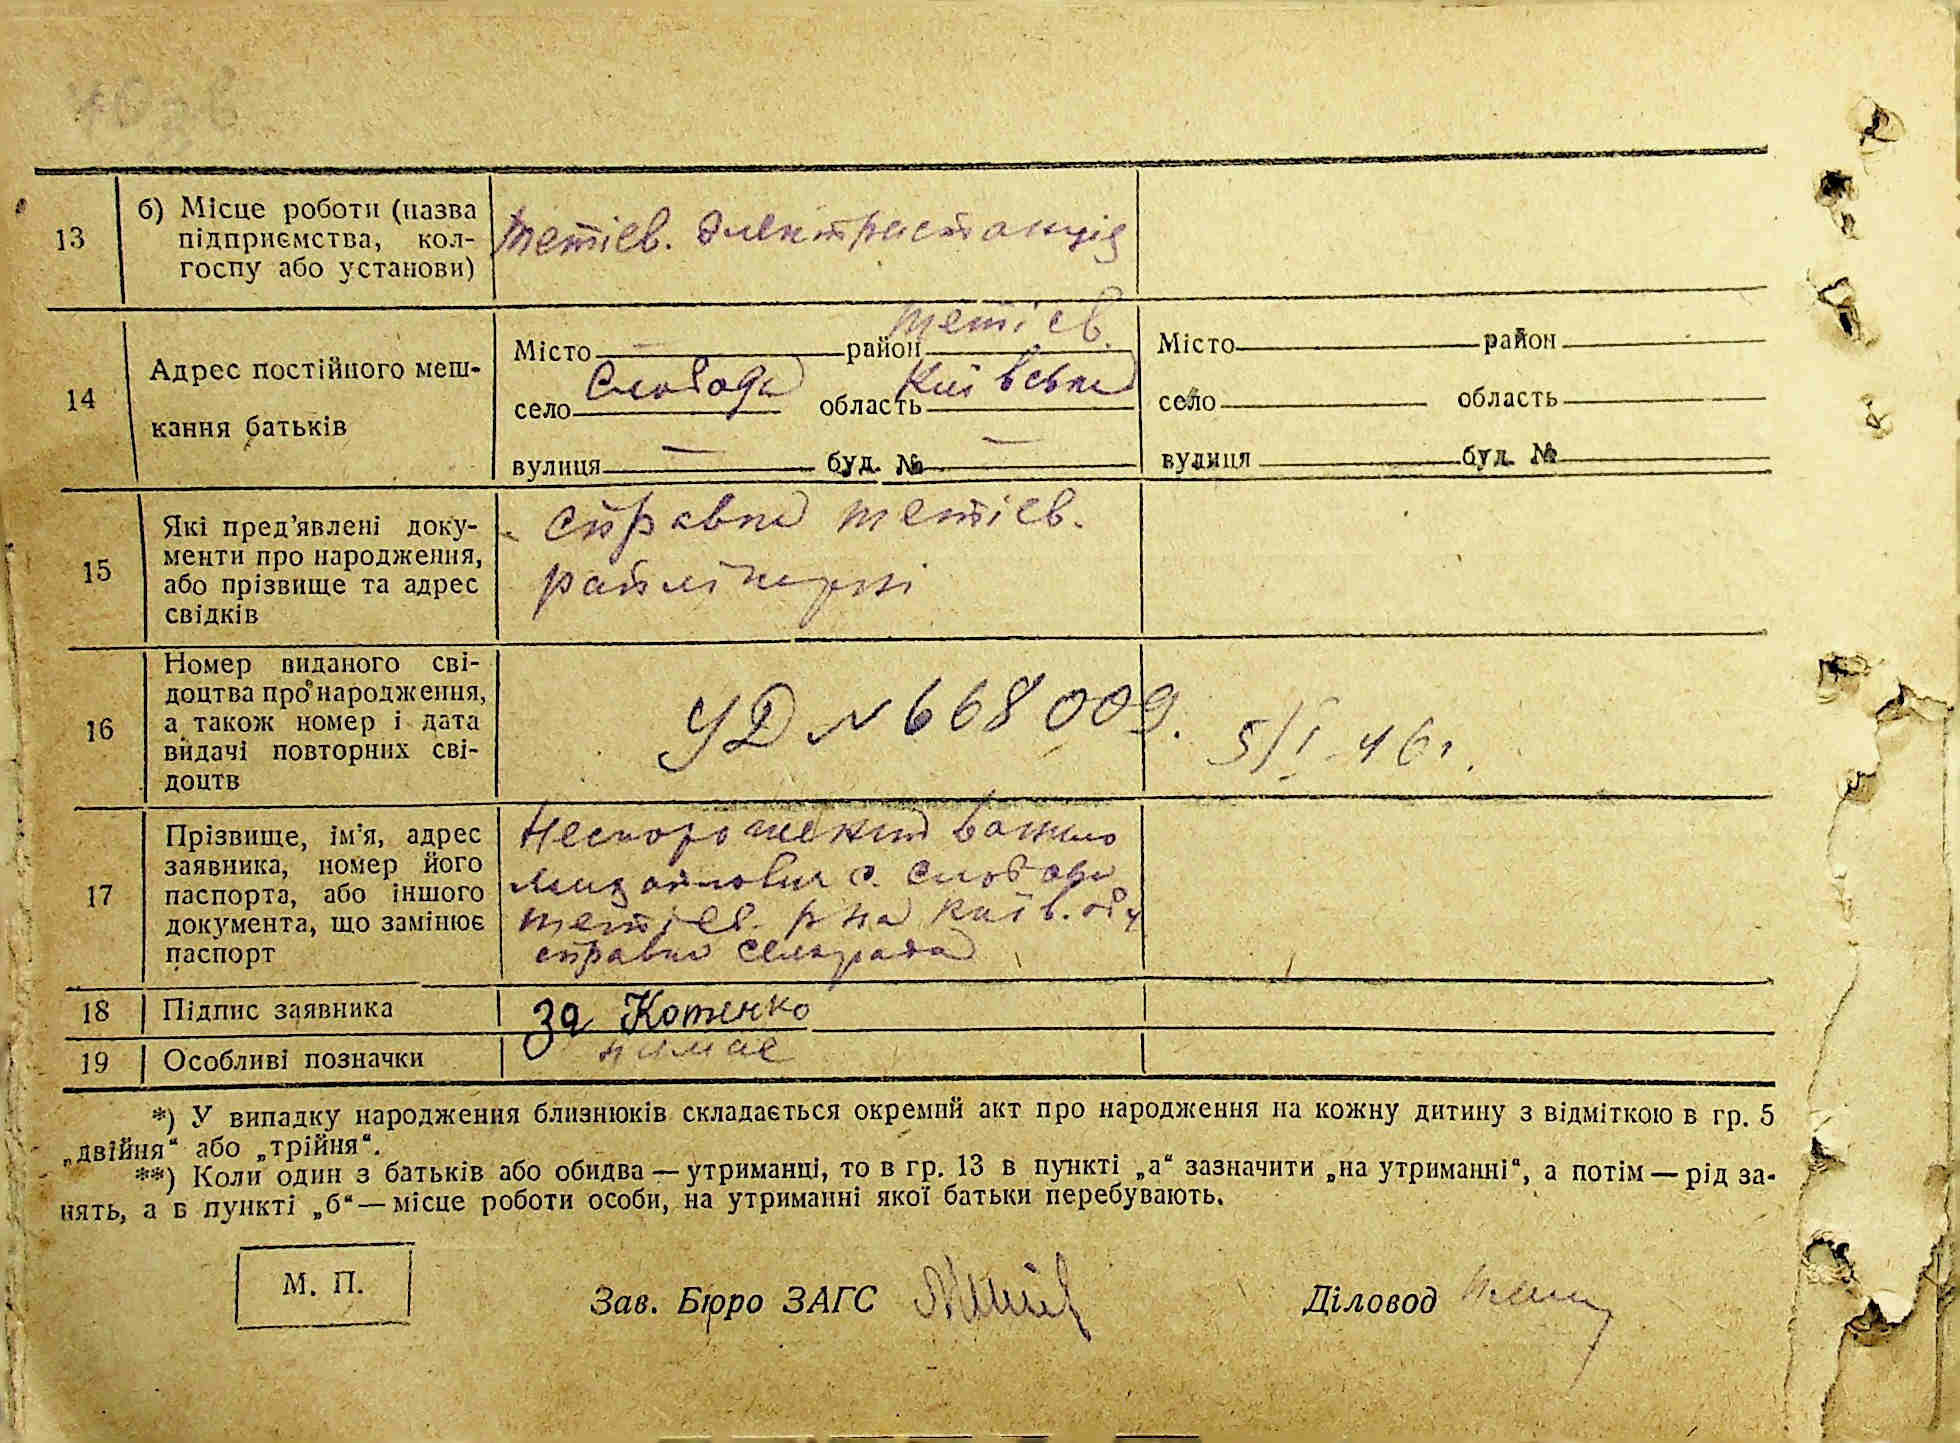 13
б) Місце роботи (назва
підприємства, кол-
госпу або установи)
тетіев. электростанція
14
Адрес постійного меш-
кання батьків
Місто — район тетіев.
село Слобода область Київська
вулиця — буд. № —
Місто район
село область
вулиця буд. №
15
Які пред'явлені доку-
менти про народження,
або прізвище та адрес
свідків
справка тетіев.
райлікарні
16
Номер виданого сві-
доцтва про народження,
а також номер і дата
видачі повторних сві-
доцтв
УД № 668009. 5/I 46 г.
17
Прізвище, ім'я, адрес
заявника, номер його
паспорта, або іншого
документа, що замінює
паспорт
с. Слобода
тетіев. р на Київ. обл
справка сельрада
18
Підпис заявника
За Котенко
19
Особливі позначки
немає
*) У випадку народження близнюків складається окремий акт про народження на кожну дитину з відміткою в гр. 5
„двійня“ або „трійня“.
**) Коли один з батьків або обидва — утриманці, то в гр. 13 в пункті „а“ зазначити „на утриманні“, а потім — рід за-
нять, а в пункті „б“ — місце роботи особи, на утриманні якої батьки перебувають.
М. П.
Зав. Бюро ЗАГС
Діловод